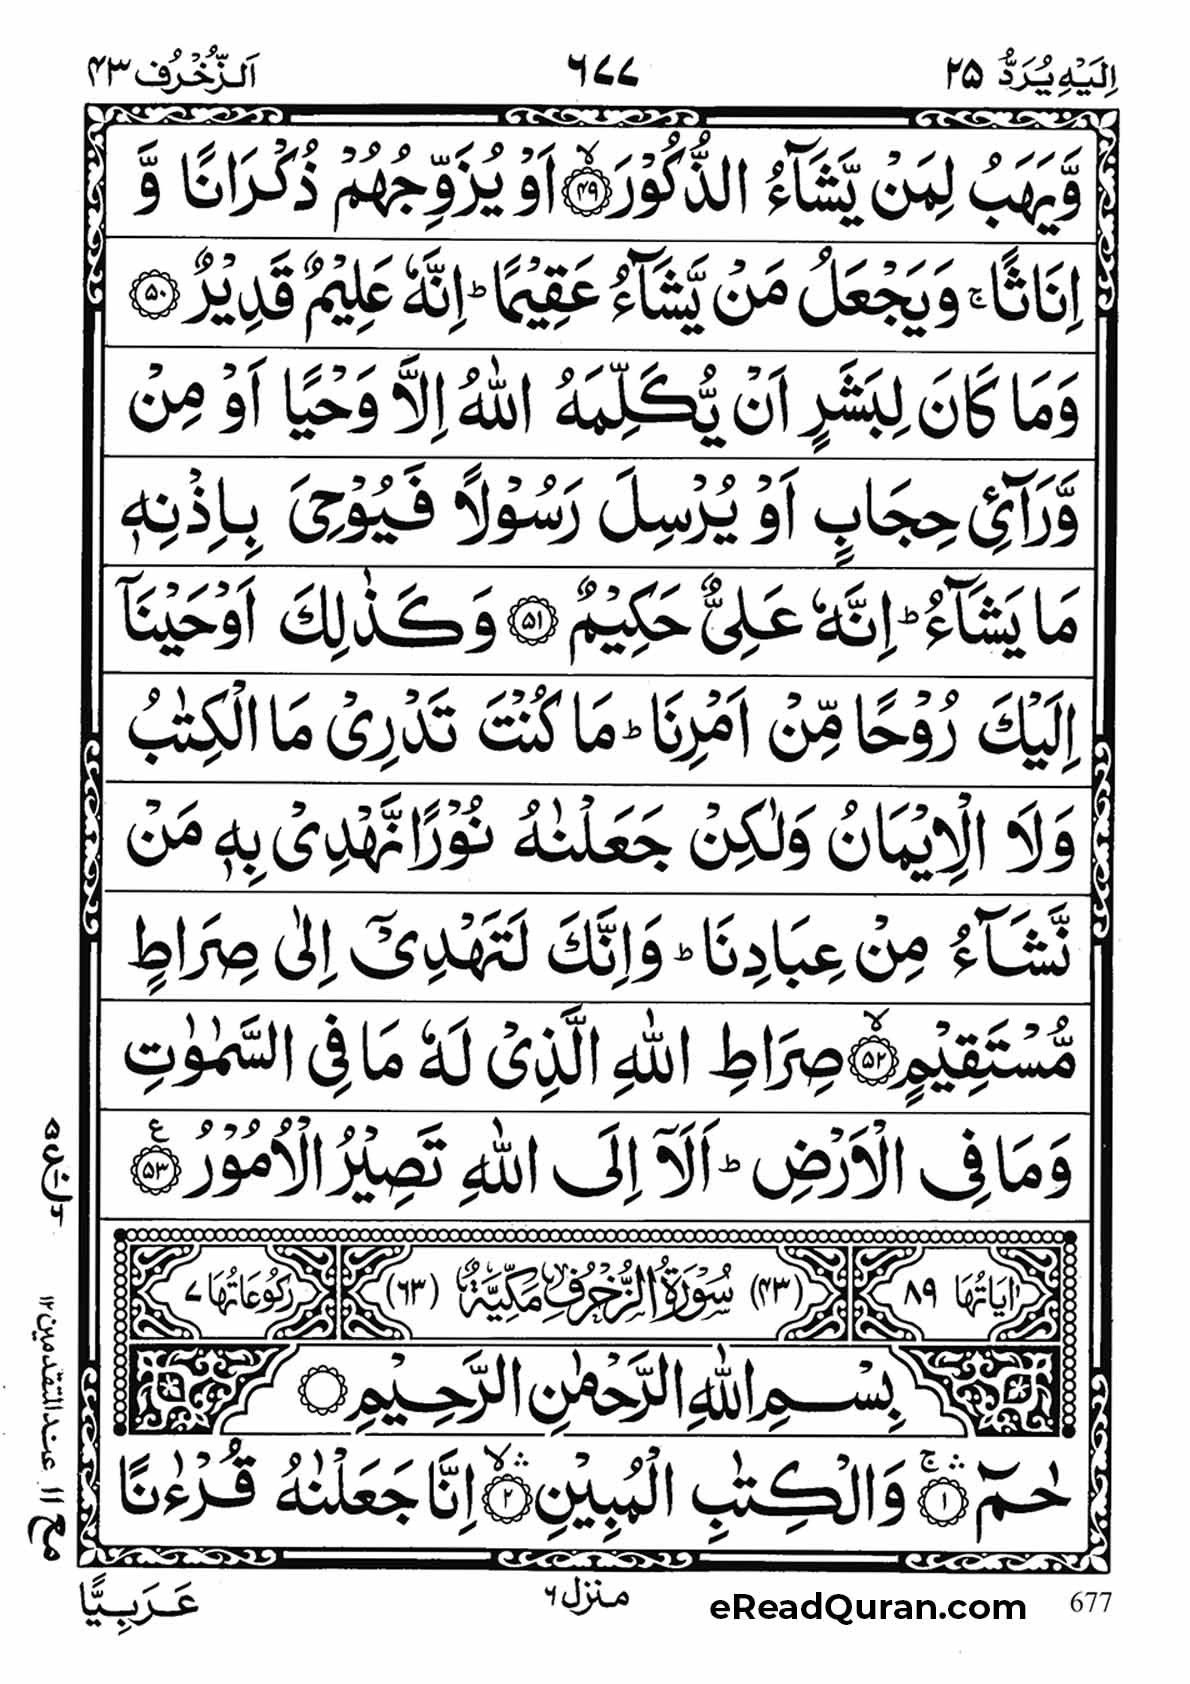 اِلَيْهِ يُرَدُّ ٢٥
٦٧٧
اَلزُّخْرُف ٤٣
وَّيَهَبُ لِمَنْ يَّشَآءُ الذُّكُوْرَ ۙ‏﴿۴۹﴾ اَوْ يُزَوِّجُهُمْ ذُكْرَانًا وَّ
اِنَاثًا ۚ وَيَجْعَلُ مَنْ يَّشَآءُ عَقِيْمًا ؕ اِنَّهٗ عَلِيْمٌ قَدِيْرٌ ﴿۵۰﴾
وَمَا كَانَ لِبَشَرٍ اَنْ يُّكَلِّمَهُ اللّٰهُ اِلَّا وَحْيًا اَوْ مِنْ
وَّرَآئِ حِجَابٍ اَوْ يُرْسِلَ رَسُوْلًا فَيُوْحِىَ بِاِذْنِهٖ
مَا يَشَآءُ ؕ اِنَّهٗ عَلِىٌّ حَكِيْمٌ ﴿۵۱﴾ وَكَذٰلِكَ اَوْحَيْنَاۤ
اِلَيْكَ رُوْحًا مِّنْ اَمْرِنَا ؕ مَا كُنْتَ تَدْرِىْ مَا الْكِتٰبُ
وَلَا الْاِيْمَانُ وَلٰكِنْ جَعَلْنٰهُ نُوْرًا نَّهْدِىْ بِهٖ مَنْ
نَّشَآءُ مِنْ عِبَادِنَا ؕ وَاِنَّكَ لَتَهْدِىْۤ اِلٰى صِرَاطٍ
مُّسْتَقِيْمٍ ۙ﴿۵۲﴾ صِرَاطِ اللّٰهِ الَّذِىْ لَهٗ مَا فِى السَّمٰوٰتِ
وَمَا فِى الْاَرْضِ ؕ اَلَاۤ اِلَى اللّٰهِ تَصِيْرُ الْاُمُوْرُ ﴿۵۳﴾ ع
اٰيَاتُهَا ٨٩
(٤٣) سُوْرَةُ الزُّخْرُفِ مَكِّيَّةٌ (٦٣)
رُكُوْعَاتُهَا ٧
بِسْمِ اللّٰهِ الرَّحْمٰنِ الرَّحِيْمِ
حٰمٓ ۚۛ ﴿۱﴾ وَالْكِتٰبِ الْمُبِيْنِ ۙۛ ﴿۲﴾ اِنَّا جَعَلْنٰهُ قُرْءٰنًا
مع ١١ عند المتقدمين ١٢
عَرَبِيًّا
منزل ٦
eReadQuran.com
677